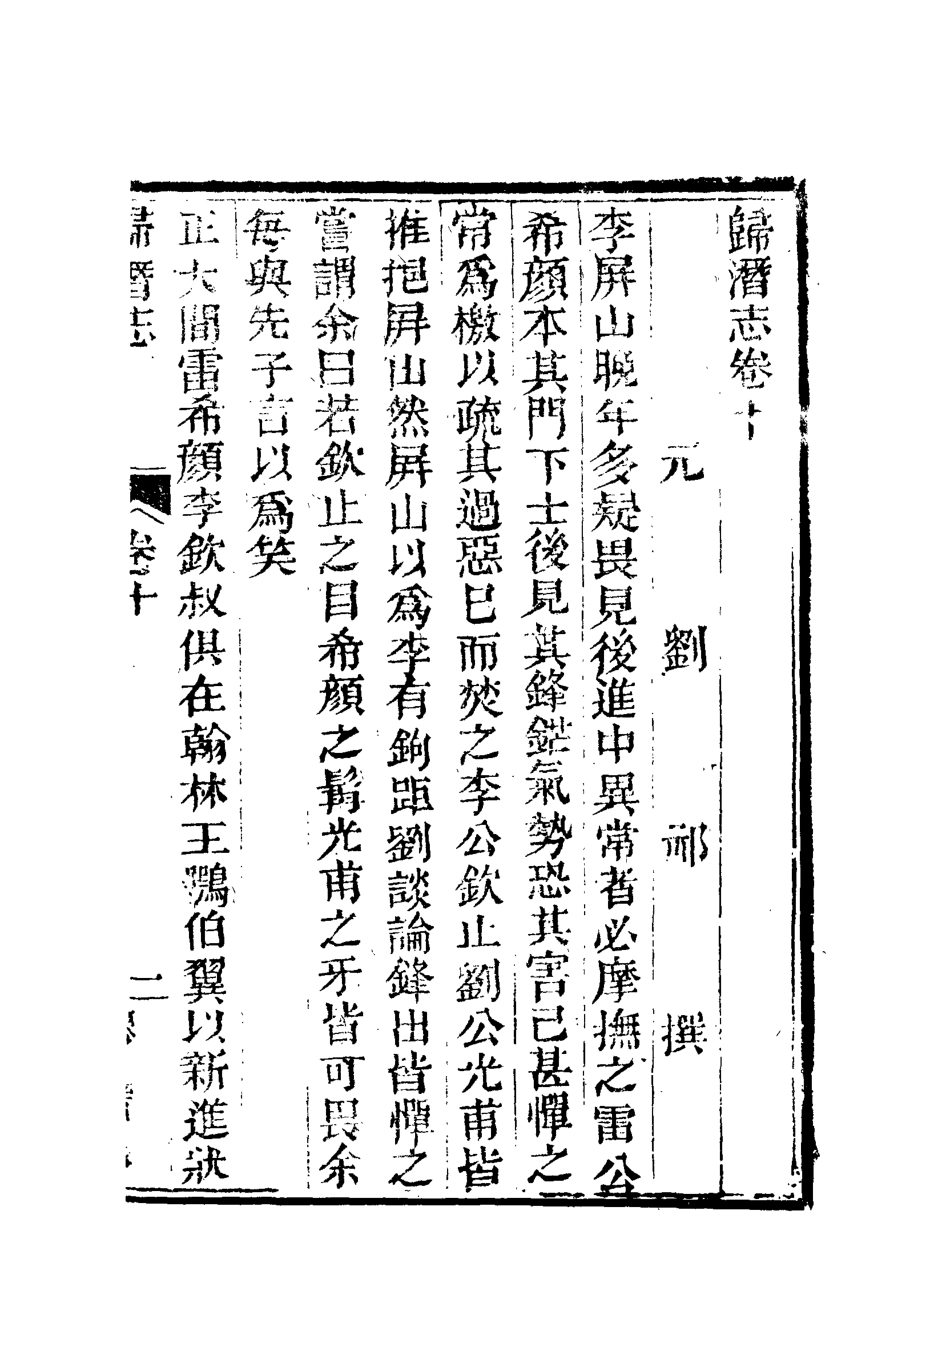 歸潛志卷十
元　劉　祁　撰
李屏山晚年多疑畏見後進中異常者必摩撫之雷公
希顏本其門下士後見其鋒鋩氣勢恐其害己甚憚之
常爲檄以疏其過惡已而焚之李公欽止劉公光甫皆
推挹屏山然屏山以爲李有鉤距劉談論鋒出皆憚之
嘗謂余曰若欽止之目希顏之髯光甫之牙皆可畏余
每與先子言以爲笑
正大間雷希顏李欽叔俱在翰林王鶚伯翼以新進狀
歸潛志　卷十　一